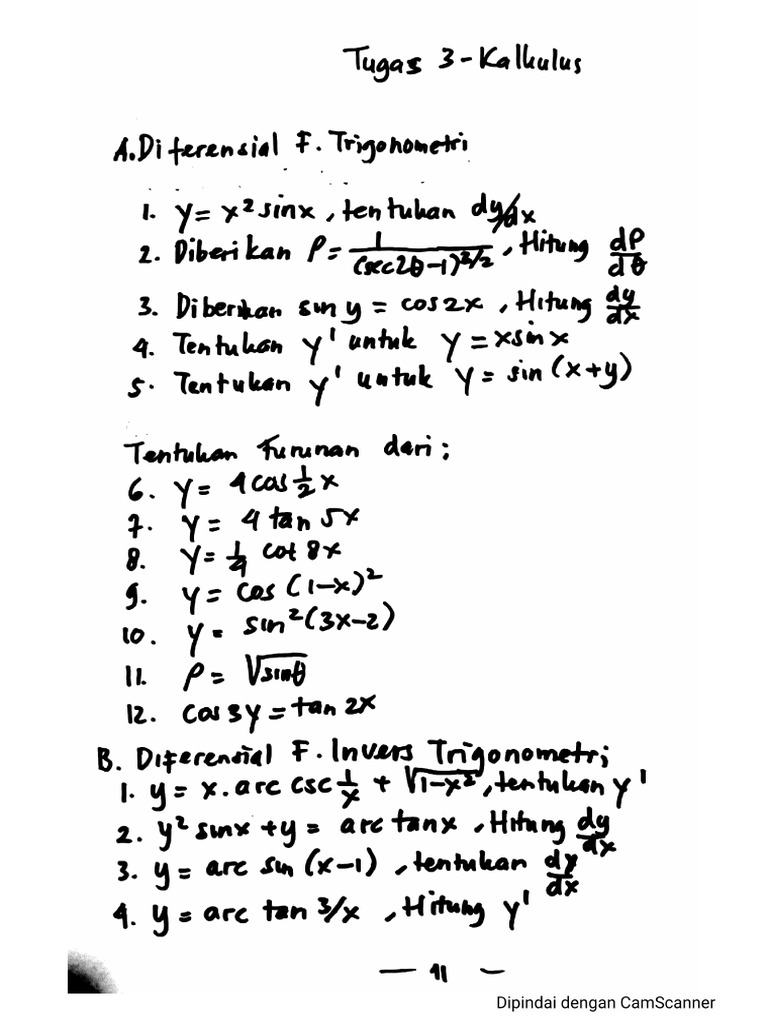 Tugas 3-Kalkulus
A. Diferensial F. Trigonometri
1. y = x² sin x , tentukan dy/dx
2. Diberikan ρ = 1/(sec2θ-1)^3/2 , Hitung dρ/dθ
3. Diberikan sin y = cos 2x , Hitung dy/dx
4. Tentukan y' untuk y = x sin x
5. Tentukan y' untuk y = sin (x+y)
Tentukan Turunan dari ;
6. y = 4 cos 1/2 x
7. y = 4 tan 5x
8. y = 1/4 cot 8x
9. y = cos (1-x)²
10. y = sin² (3x-2)
11. ρ = √sinθ
12. cos 3y = tan 2x
B. Diferensial F. Invers Trigonometri
1. y = x. arc csc 1/x + √1-x² , tentukan y'
2. y² sin x + y = arc tan x , Hitung dy/dx
3. y = arc sin (x-1) , tentukan dy/dx
4. y = arc tan 3/x , Hitung y'
Dipindai dengan CamScanner